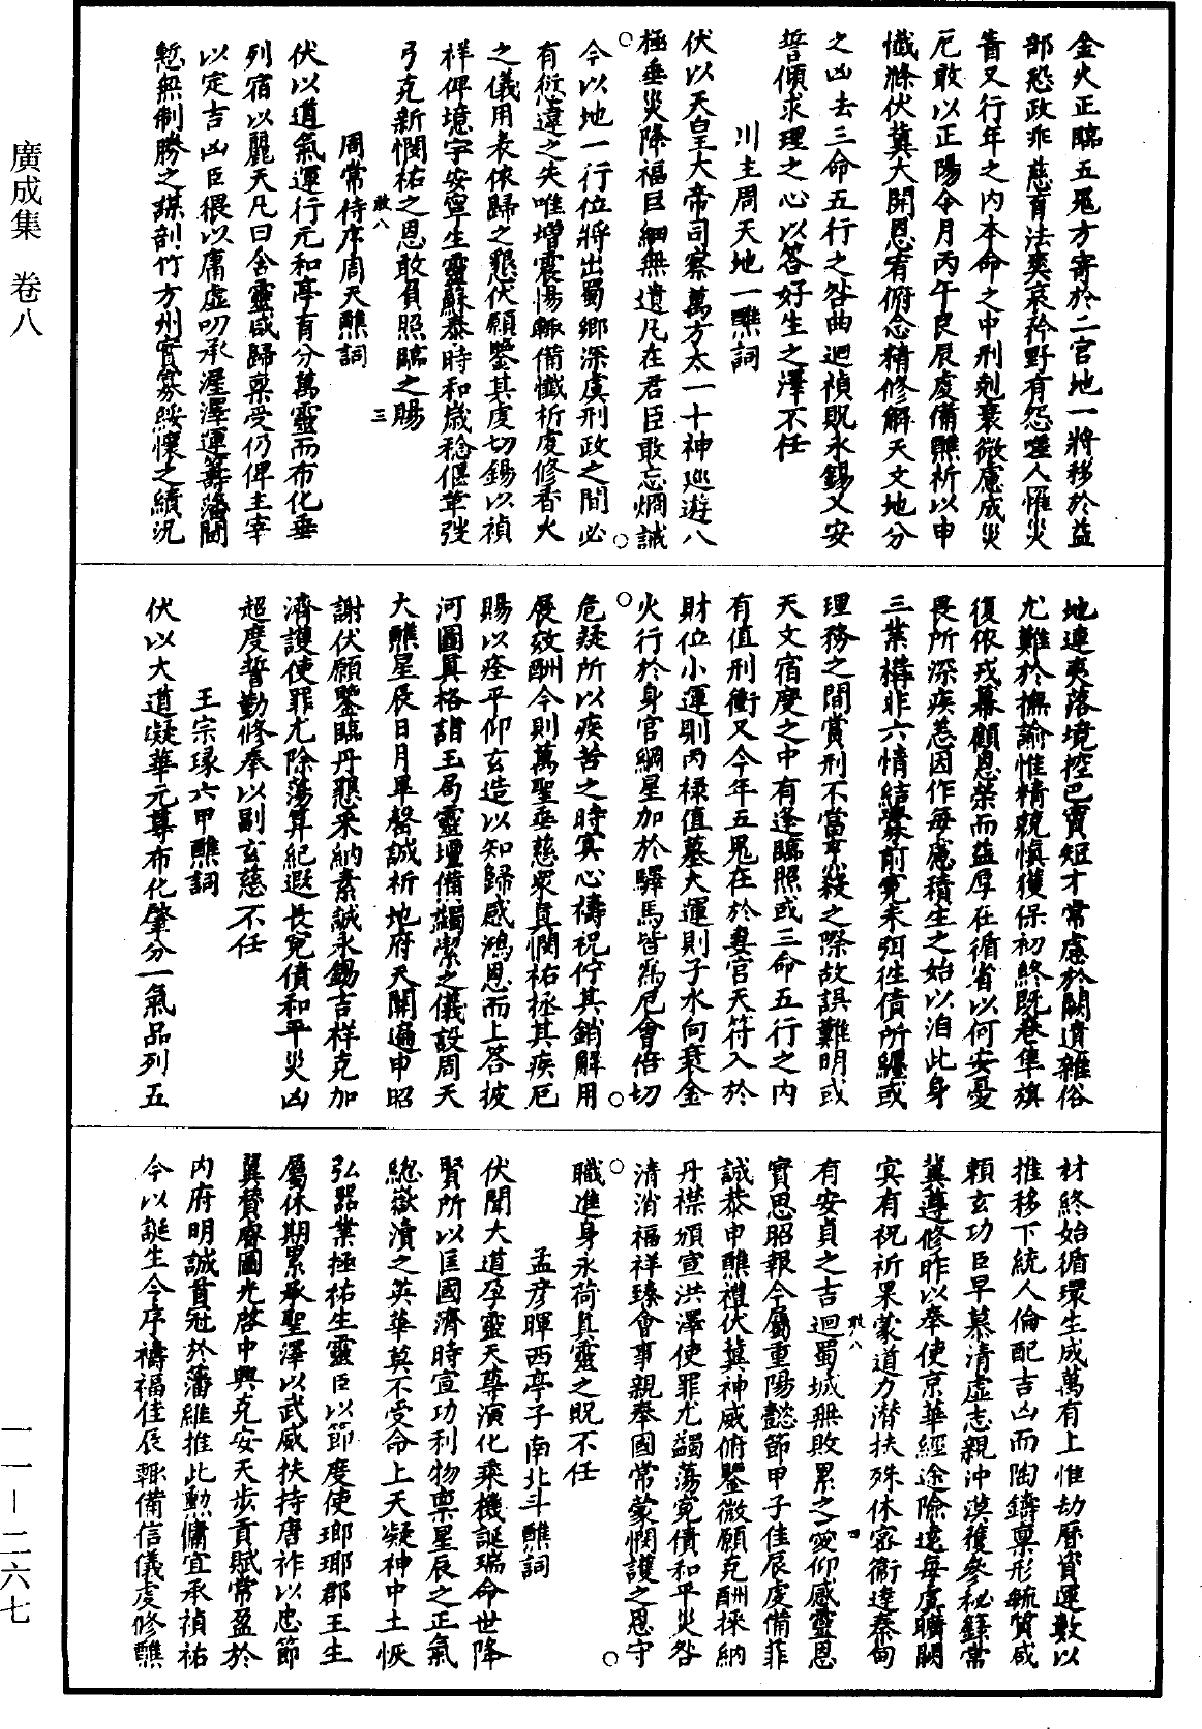 廣成集　卷八
金火正臨五鬼方寄於二宮地一將移於益
部恐政乖慈育法爽哀矜野有怨嗟人罹災
眚又行年之內本命之中刑剋衰微慮成災
厄敢以正陽令月丙午良辰虔備醮祈以申
懺滌伏冀大開恩宥俯念精修解天文地分
之凶去三命五行之咎曲迴禎貺永錫乂安
誓傾求理之心以答好生之澤不任
川主周天地一醮詞
伏以天皇大帝司察萬方太一十神巡遊八
極垂災降福巨細無遺凡在君臣敢忘烱誠
今以地一行位將出蜀鄉深虞刑政之間必
有愆違之失唯增震惕輒備懺祈虔修香火
之儀用表依歸之懇伏願鑒其虔切錫以禎
祥俾境宇安寧生靈蘇泰時和歲稔偃革弢
弓克新憫祐之恩敢負照臨之賜
敢八　三
周常侍序周天醮詞
伏以道氣運行元和亭育分萬靈而布化垂
列宿以麗天凡曰含靈咸歸稟受仍俾主宰
以定吉凶臣猥以庸虛叨承渥澤運籌藩閫
慙無制勝之謀剖竹方州實寡綏懷之績況
地連夷落境控巴賨短才常慮於闕遺雜俗
尤難於撫諭惟精兢慎獲保初終既卷隼旟
復依戎幕顧恩榮而益厚在循省以何安憂
畏所深疾恙因作每慮積生之始以洎此身
三業構非六情結釁前冤未弭往債所纏或
理務之間賞刑不當平殺之際故誤難明或
天文宿度之中有逢臨照或三命五行之內
有值刑衝又今年五鬼在於妻宮天符入於
財位小運則丙祿值墓大運則子水向衰金
火行於身宮綱星加於驛馬皆爲厄會倍切
危疑所以疾苦之時冥心禱祝佇其銷解用
展效酬今則萬聖垂慈衆真憫祐拯其疾厄
賜以痊平仰玄造以知歸感鴻恩而上答披
河圖真格詣玉局靈壇備蠲潔之儀設周天
大醮星辰日月畢罄誠祈地府天關遍申昭
謝伏願鑒臨丹懇采納素誠永錫吉祥克加
濟護使罪尤除蕩算紀遐長冤債和平災凶
超度誓勤修奉以副玄慈不任
王宗瑑六甲醮詞
伏以大道凝華元尊布化肇分一氣品列五
材終始循環生成萬有上惟劫曆實運數以
推移下統人倫配吉凶而陶鑄稟形毓質咸
賴玄功臣早慕清虛志親沖漠獲參秘籙常
冀遵修昨以奉使京華經途險遠每虞曠闕
冥有祝祈果蒙道力潛扶殊休密衛達秦甸
有安貞之吉迴蜀城無敗累之憂仰感靈恩
敢八　四
實思昭報今屬重陽懿節甲子佳辰虔備菲
誠恭申醮禮伏冀神威俯鑒微願克酬採納
丹襟頒宣洪澤使罪尤蠲蕩冤債和平災咎
清消福祥臻會事親奉國常蒙憫護之恩守
職進身永荷真靈之貺不任
孟彥暉西亭子南北斗醮詞
伏聞大道孕靈天尊演化乘機誕瑞命世降
賢所以匡國濟時宣功利物稟星辰之正氣
總嶽瀆之英華莫不受命上天凝神中土恢
弘器業極祐生靈臣以節度使瑯琊郡王生
屬休期累承聖澤以武威扶持唐祚以忠節
翼贊睿圖光啓中興克安天步貢賦常盈於
內府明誠首冠於藩維推此勳庸宜承禎祐
今以誕生令序禱福佳辰輒備信儀虔修醮
一一—二六七